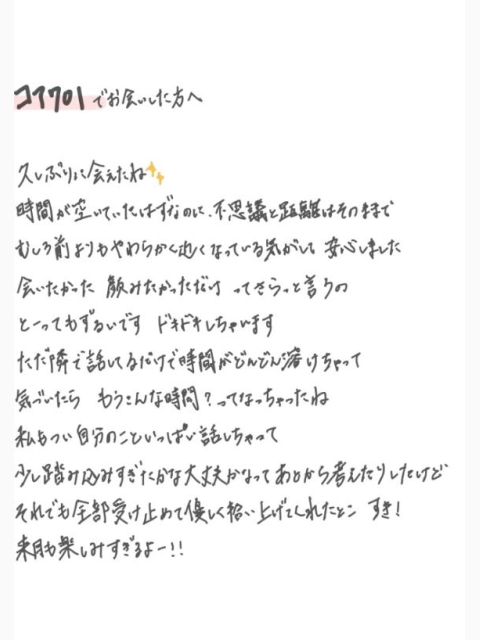 コイ701でお会いした方へ
久しぶりに会えたね✨
時間が空いていたはずなのに、不思議と距離はそのままで
むしろ前よりもやわらかく近くなっている気がして 安心しました
会いたかった 顔みたかっただけ ってさらっと言うの
とーってもずるいです ドキドキしちゃいます
ただ隣で話してるだけで時間がどんどん溶けちゃって
気づいたら もうこんな時間?ってなっちゃったね
私もつい自分のこといっぱい話しちゃって
少し踏み込みすぎたかな大丈夫かなってあとから考えたりしたけど
それでも全部受け止めて優しく拾い上げてくれたとこ すき!
来月も楽しみすぎるよー!!